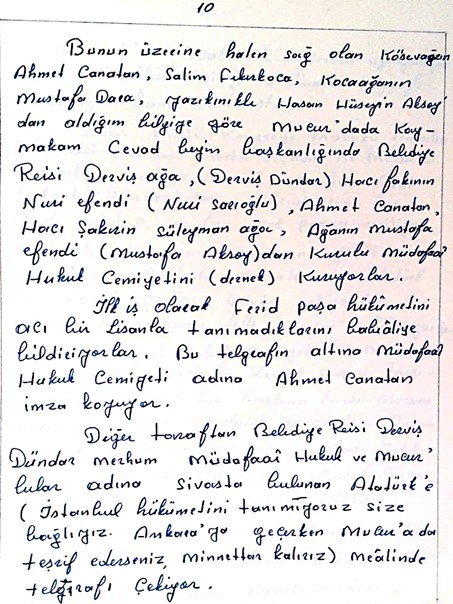 10
Bunun üzerine halen sağ olan Kösevağan
Ahmet Canatan, Salim Fıkırkoca, Kocaağanın
Mustafa Dara, yazıkınıklı Hasan Hüseyin Aksoy'
dan aldığım bilgiye göre Mucur'dada Kay-
makam Cevad beyin başkanlığında Belediye
Reisi Derviş ağa, (Derviş Dündar) Hacı fakının
Nuri efendi (Nuri sarıoğlu), Ahmet Canatan,
Hacı Şakirin süleyman ağa, Ağanın Mustafa
efendi (Mustafa Aksoy)dan Kurulu Müdafaaî
Hukuk Cemiyetini (dernek) Kuruyorlar.
İlk iş olarak Ferid paşa hükûmetini
acı bir lisanla tanımadıklarını babıâliye
bildiriyorlar. Bu telgrafın altına Müdafaaî
Hukuk Cemiyeti adına Ahmet Canatan
imza koyuyor.
Diğer taraftan Belediye Reisi Derviş
Dündar merhum Müdafaaî Hukuk ve Mucur'
lular adına sivasta bulunan Atatürk'e
(İstanbul hükûmetini tanımıyoruz size
bağlıyız. Ankara'ya geçerken Mucur'a da
teşrif ederseniz, minnettar kalırız) meâlinde
telğrafı Çekiyor.